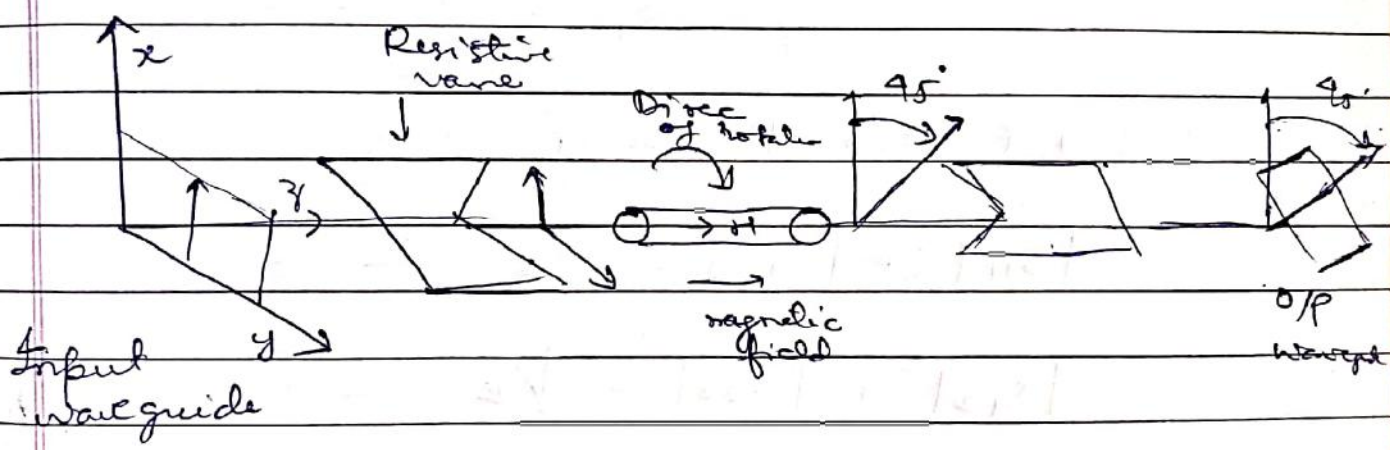 x
Resistive
vane
Direc
of rotatn
45°
45°
z
H
magnetic
field
O/P
y
Input
waveguide